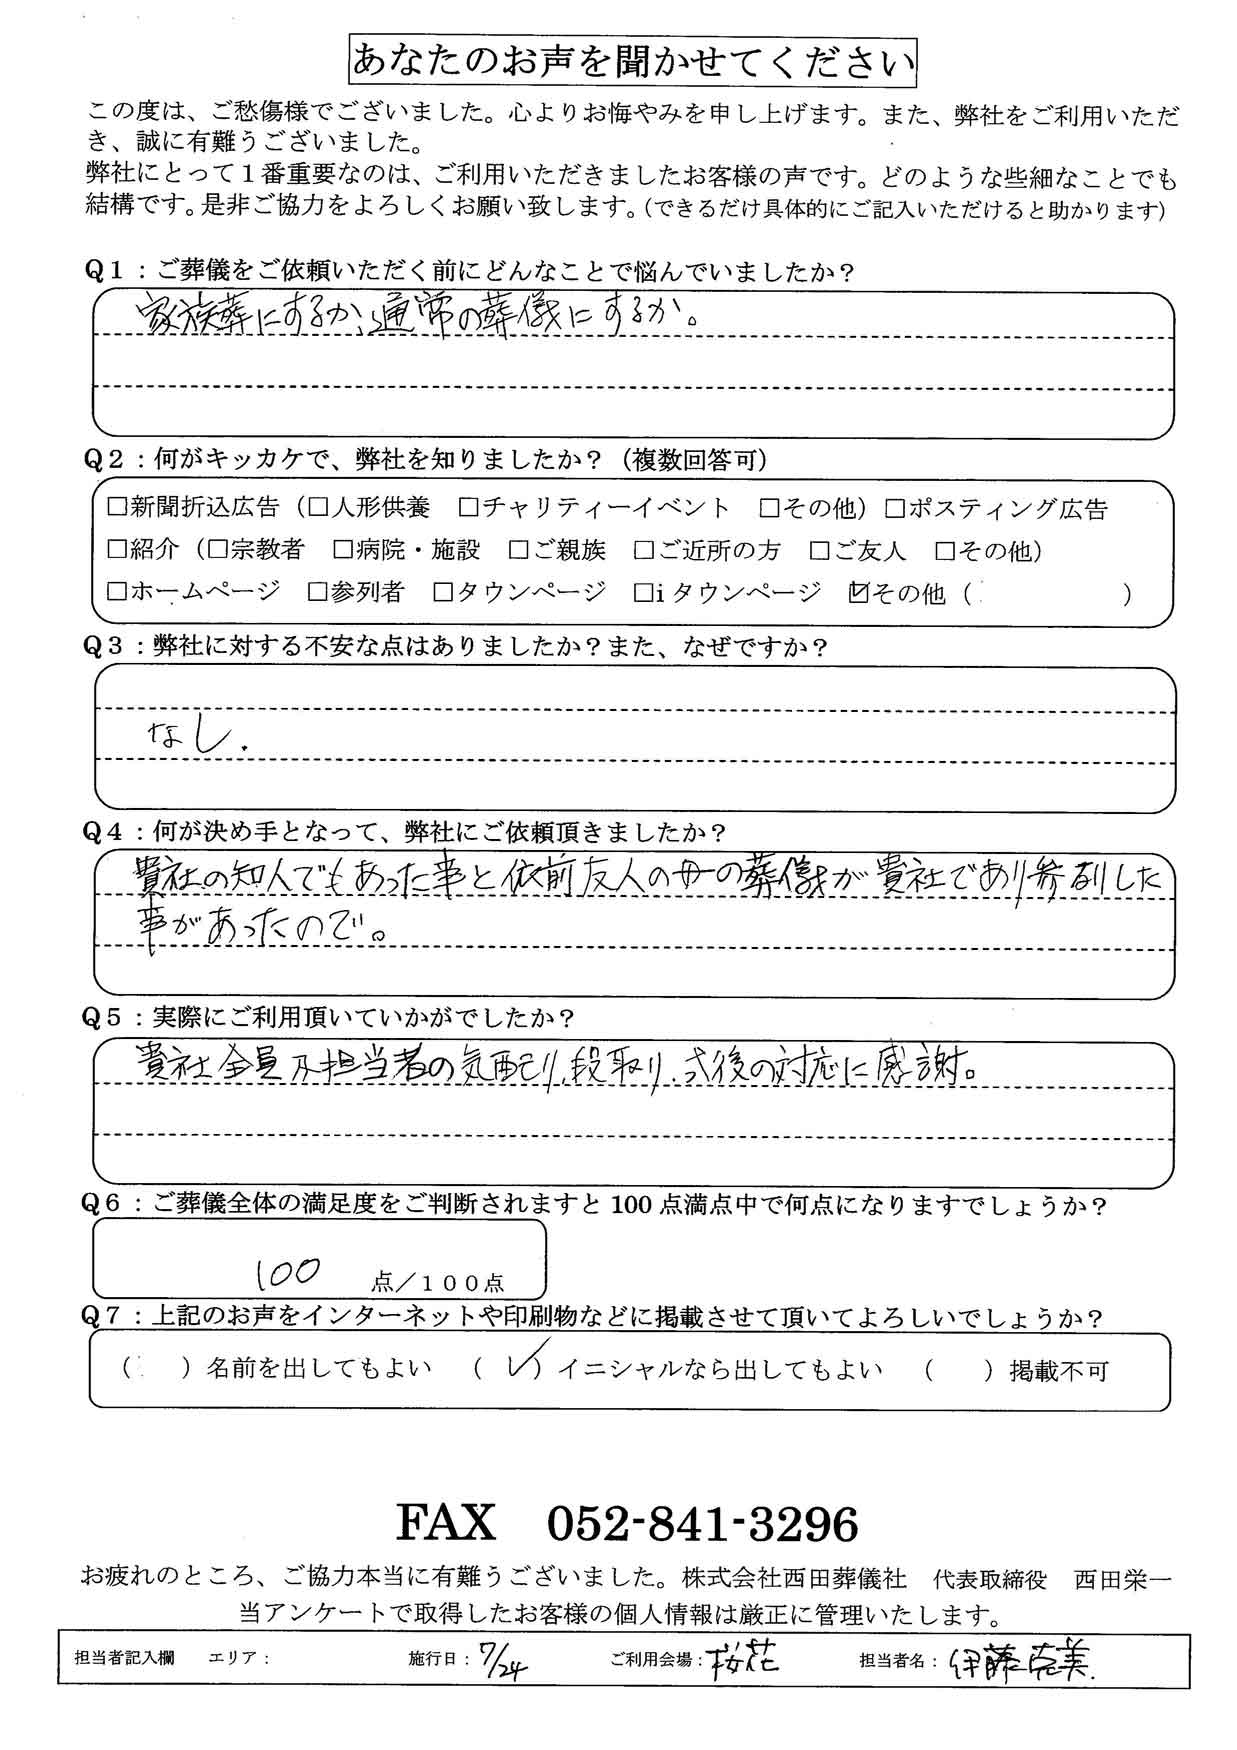 あなたのお声を聞かせてください
この度は、ご愁傷様でございました。心よりお悔やみを申し上げます。また、弊社をご利用いただ
き、誠に有難うございました。
弊社にとって１番重要なのは、ご利用いただきましたお客様の声です。どのような些細なことでも
結構です。是非ご協力をよろしくお願い致します。（できるだけ具体的にご記入いただけると助かります）
Q１：ご葬儀をご依頼いただく前にどんなことで悩んでいましたか？
家族葬にするか、通常の葬儀にするか。
Q２：何がキッカケで、弊社を知りましたか？（複数回答可）
□新聞折込広告（□人形供養　□チャリティーイベント　□その他）□ポスティング広告
□紹介（□宗教者　□病院・施設　□ご親族　□ご近所の方　□ご友人　□その他）
□ホームページ　□参列者　□タウンページ　□i タウンページ　☑その他（　　　　　　）
Q３：弊社に対する不安な点はありましたか？また、なぜですか？
なし．
Q４：何が決め手となって、弊社にご依頼頂きましたか？
貴社の知人でもあった事と依前友人の母の葬儀が貴社であり参列した
事があったので。
Q５：実際にご利用頂いていかがでしたか？
貴社全員及担当者の気配り、段取り、式後の対応に感謝。
Q６：ご葬儀全体の満足度をご判断されますと 100 点満点中で何点になりますでしょうか？
100　点／１００点
Q７：上記のお声をインターネットや印刷物などに掲載させて頂いてよろしいでしょうか？
（　　）名前を出してもよい　（✓）イニシャルなら出してもよい　（　　）掲載不可
FAX　052-841-3296
お疲れのところ、ご協力本当に有難うございました。株式会社西田葬儀社　代表取締役　西田栄一
当アンケートで取得したお客様の個人情報は厳正に管理いたします。
担当者記入欄　エリア：　施行日：7/24　ご利用会場：桜花　担当者名：伊藤克美.